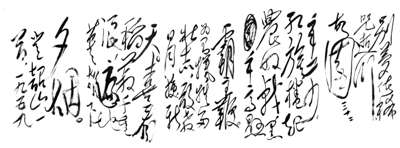 别梦依稀
咒逝川
故园三十二
年前
红旗捲起
農奴戟黑
手高悬
霸主鞭
为有牺牲多
壮志敢教
日月换新
天喜看
稻菽千重
浪遍
地英雄下
夕烟